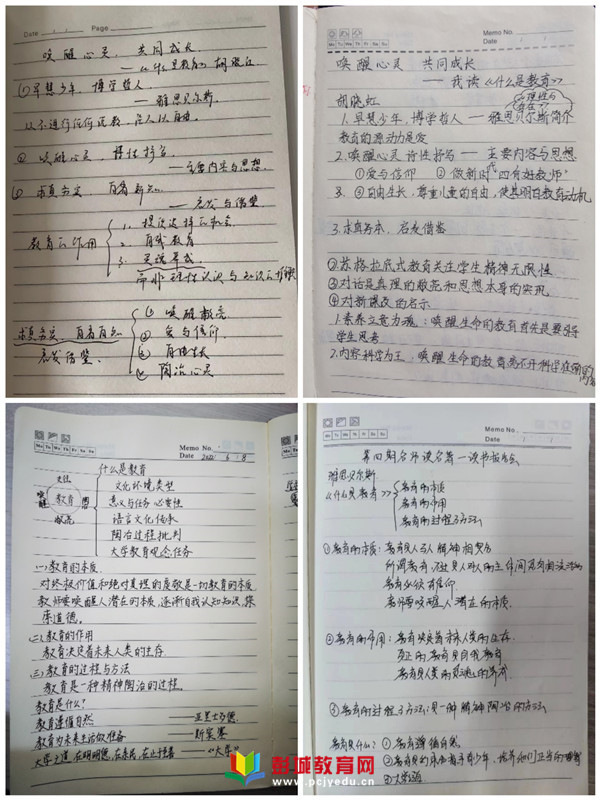 Date / / Page
唤醒心灵，共同成长
——《什么是教育》 胡晓红
①早慧少年，博学哲人
——雅思贝尔斯
② 唤醒心灵，诗性抒写
——主要内容与思想
——启发与借鉴
教育的作用
2. 自我教育
而非理性认识与知识的堆积
启发借鉴
① 唤醒敞亮
② 爱与信仰
③ 自由生长
④ 陶冶心灵
Memo No.
Mo Tu We Th Fr Sa Su
Date / /
唤醒心灵 共同成长
——我读《什么是教育》
胡晓红
1.早慧少年，博学哲人——雅思贝尔斯简介
教育的源动力是爱
2.唤醒心灵 诗性抒写——主要内容与思想
①爱与信仰 ②做新时代"四有好教师"
③自由生长，尊重儿童的自由，使其明白教育动机
3.求真务本，启发借鉴
②苏格拉底式教育关注学生精神无限性
③对话是真理的敞亮和思想本身的实现
④对新课改的启示
1.素养立意为魂：唤醒生命的教育首先是要引导
学生思考
2.内容科学为王：唤醒生命的教育离不开科学在
Memo No.
Mo Tu We Th Fr Sa Su
Date 2021 6 8
什么是教育
文化环境类型
意义与任务 必要性
语言文化传承
陶冶过程批判
大学教育观念任务
教育
唤醒
(一)教育的本质
对终极价值和绝对真理的虔敬是一切教育的本质
教师要唤醒人潜在的本质，逐渐自我认知知识，探
索道德。
(二)教育的作用
教育决定着未来人类的生存
(三)教育的过程与方法
教育是一种精神陶冶的过程。
教育是什么？
教育遵循自然——亚里士多德
教育为未来生活做准备——斯宾塞
大学之道，在明明德，在亲民，在止于至善——《大学》
Memo No.
Mo Tu We Th Fr Sa Su
Date / /
第四期名师读名著—读书报告会
雅思贝尔斯
《什么是教育》
教育的本质
教育的作用
教育的过程与方法
①教育的本质：教育是人与人精神相契合
教育必须有信仰
教师要唤醒人潜在的本质
②教育的作用：教育决定着未来人类的生存
③教育的过程与方法：是一种精神陶冶的方法
教育是什么：①教育遵循自然
③大学之道
彭城教育网
www.pcjyedu.cn